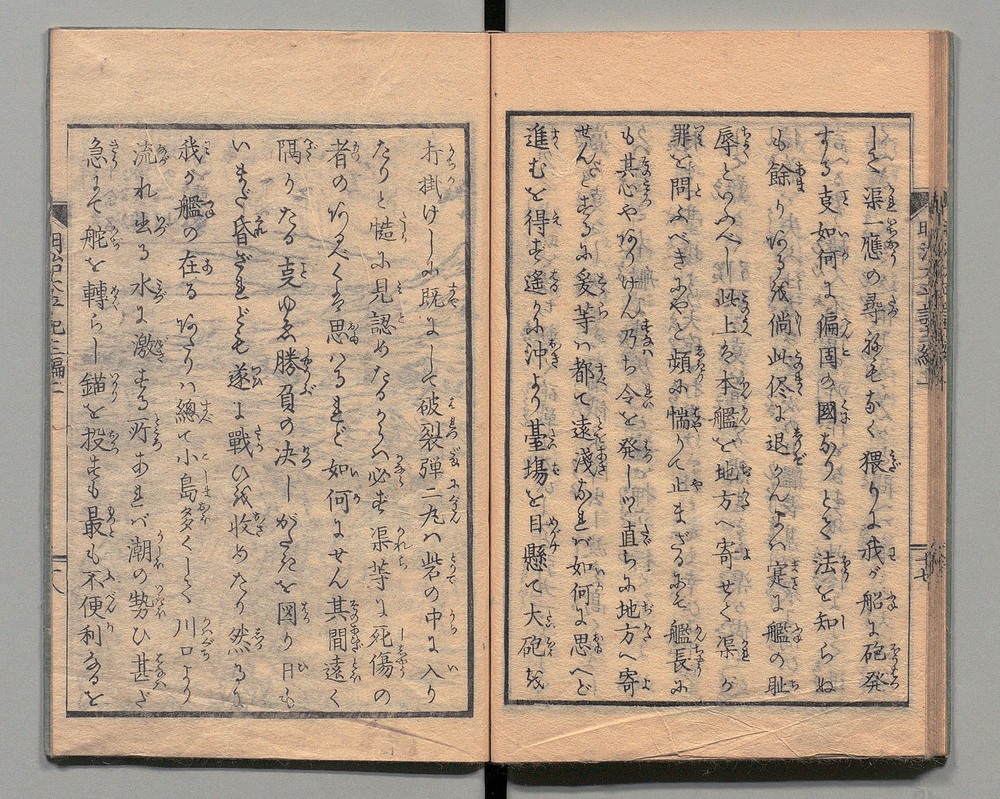 して渠一應の尋ねもなく猥りに我が船に砲発
する支如何に偏固の國なりとて法を知らぬ
も餘りなる伐倘此侭に退かんよハ寔に艦の耻
辱といふべし此上ハ本艦を地方へ寄せて渠が
罪を問ふべきにやと頻に惴りて止まざるにそ艦長に
も其心やありけん乃ち令を発しツヽ直ちに地方へ寄
せんとするに爰等ハ都て遠淺なれバ如何に思へど
進むを得ず遙に沖より臺塲を目懸て大砲を
打掛けしに既にして破裂弾二丸ハ砦の中に入り
たりと慥に見認めたるからハ必ず渠等に死傷の
者のあるべくとハ思ハるれど如何にせん其間遠く
隔りたる支ゆゑ勝負の决しがたきを図り日も
いまだ昏ざれども遂に戰ひを收めたり然るに
我が艦の在るあたりハ總て小島多くして川口より
流れ出る水に激する所あれバ潮の勢ひ甚だ
急にて舵を轉らし錨を投ずも最も不便利なるを
十七
十八